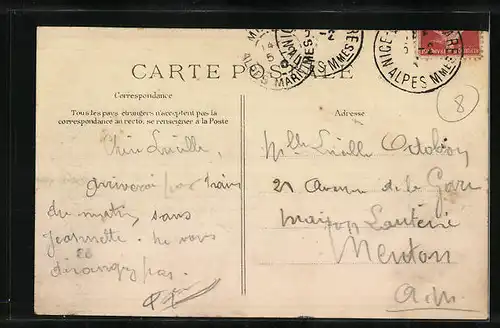 CARTE POSTALE
Correspondance
Tous les pays étrangers n'acceptent pas la
correspondance au recto, se renseigner à la Poste
Adresse
NICE
ALPES MMES
ALPES MARITIMES
8
Chère Lucille,
arriverai par train
du matin, sans
Jeannette. ne vous
dérangez pas.
Mlle Lucille Octobon
21 Avenue de la Gare
maison
Menton
A.M.